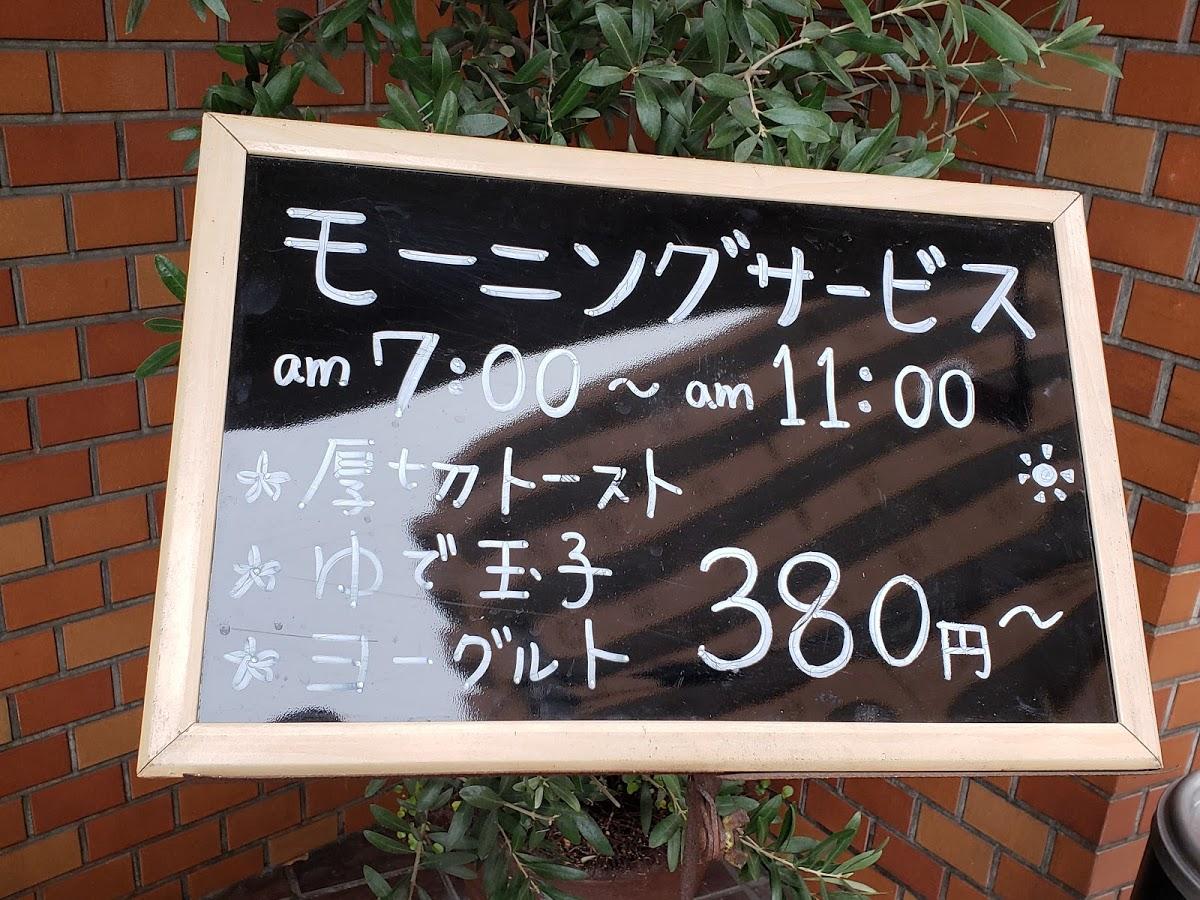 モーニングサービス
am 7:00 ～ am 11:00
厚切トースト
ゆで玉子
ヨーグルト
380円～